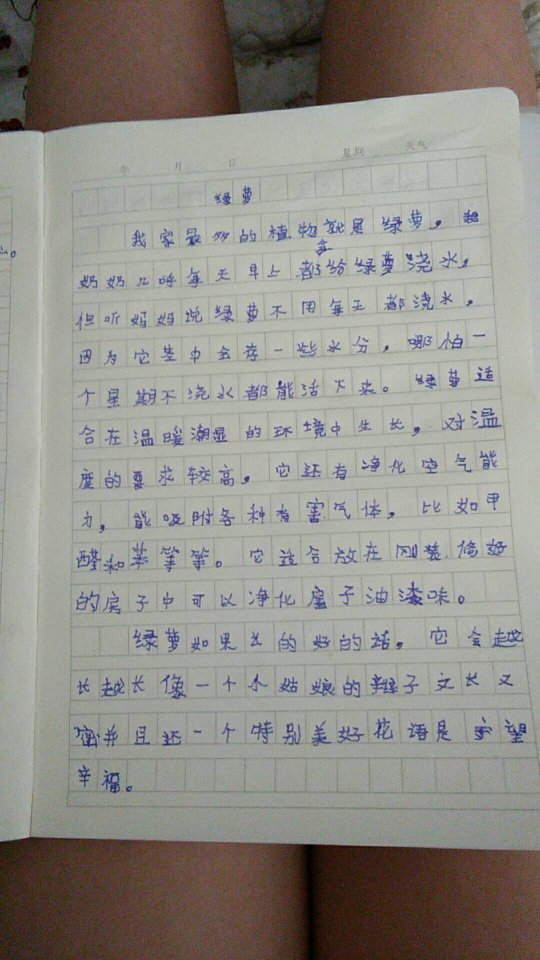 年 月 日 星期 天气
绿萝
我家最多的植物就是绿萝，我
奶奶几呼每天早上都会给绿萝浇水，
但听妈妈说绿萝不用每天都浇水，
因为它茎中会存一些水分，哪怕一
个星期不浇水都能活下来。绿萝适
合在温暖潮湿的环境中生长，对温
度的要求较高，它还有净化空气能
力，能吸附各种有害气体，比如甲
醛和苯等等。它适合放在刚装修好
的房子中可以净化屋子油漆味。
绿萝如果长的好的话，它会越
长越长像一个小姑娘的辫子又长又
密并且还一个特别美好花语是守望
幸福。